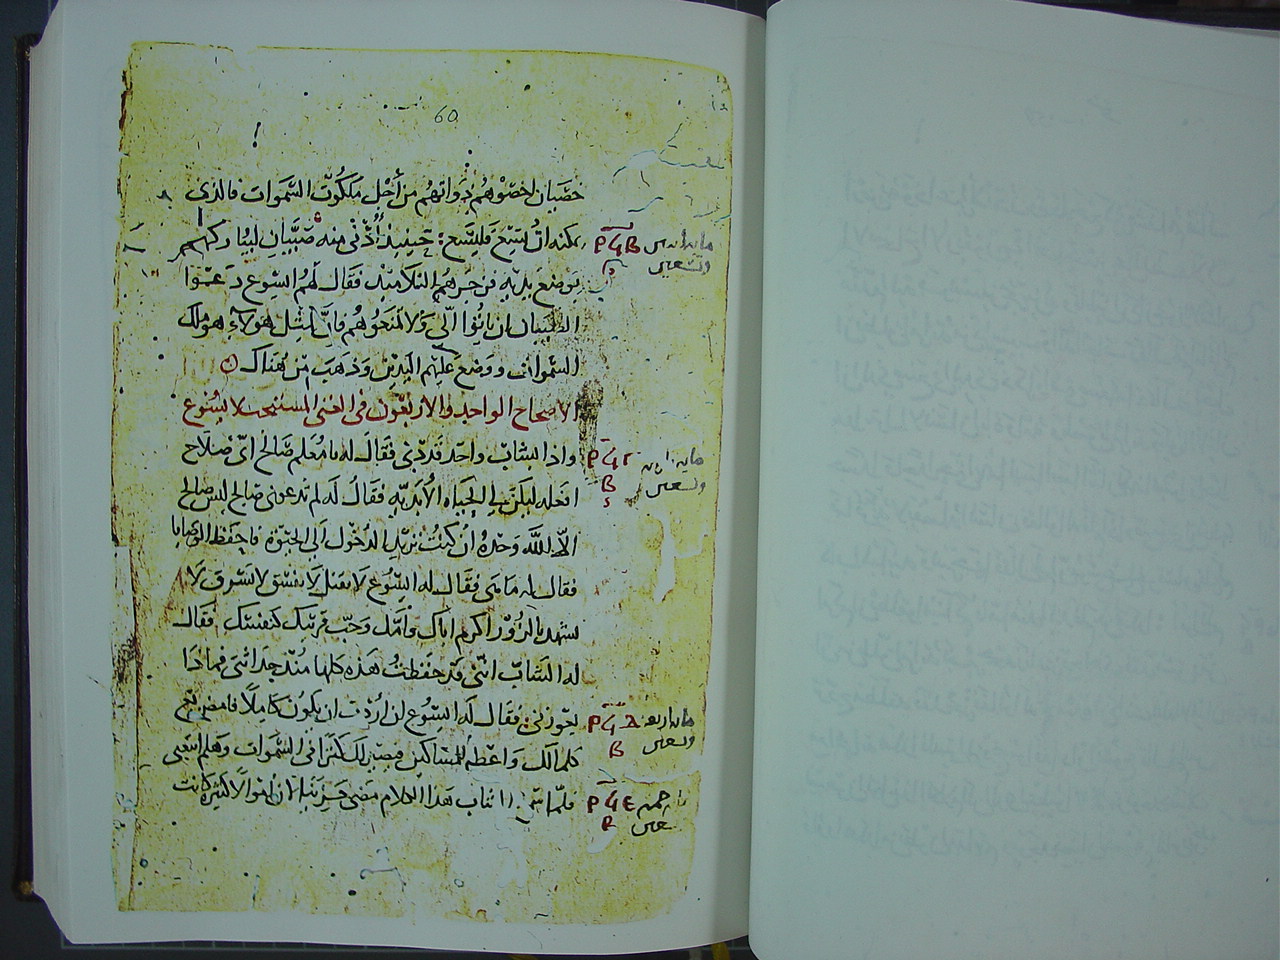 60
خصيان اخصوهم ذواتهم من أجل ملكوت السموات فالذي
يمكنه ان يتسع فليتسع حينيذ أدنى منه صبيان ليباركهم
بوضع يديه فزجرهم التلاميذ فقال لهم ايسوع دعوا
الصبيان ان ياتوا الي ولا تمنعوهم فان لمثل هولاء هو ملك
السموات ووضع عليهم اليدين وذهب من هناك
الاصحاح الواحد والاربعون في الغني المستخبر لايسوع
واذا بشاب واحد قد دنى فقال له يا معلم صالح اي صلاح
افعله ليكن لي الحياه الأبديه فقال له لم تدعوني صالح ليس صالح
الا الله وحده ان كنت تريد الدخول الي الحيوة فاحفظ الوصايا
فقال له ما هي فقال له ايسوع لا تقتل لا تفسق لا تسرق لا
تشهد بالزور اكرم اباك وأمك وحب قريبك كنفسك فقال
له الشاب انني قد حفظت هذه كلها منذ حداثتي فماذا
يعوزني فقال له ايسوع ان أردت ان يكون كاملا فامض بع
كلما لك واعط المساكين فيصير لك كنزا في السموات وهلم اتبعني
فلما سمع الشاب هذا الكلام مضى حزينا لان اموالا كثيره كانت
مايه اثنين
وتسعين
مايه
وتسعين
مايه اربعه
وتسعين
خمسه
تسعين